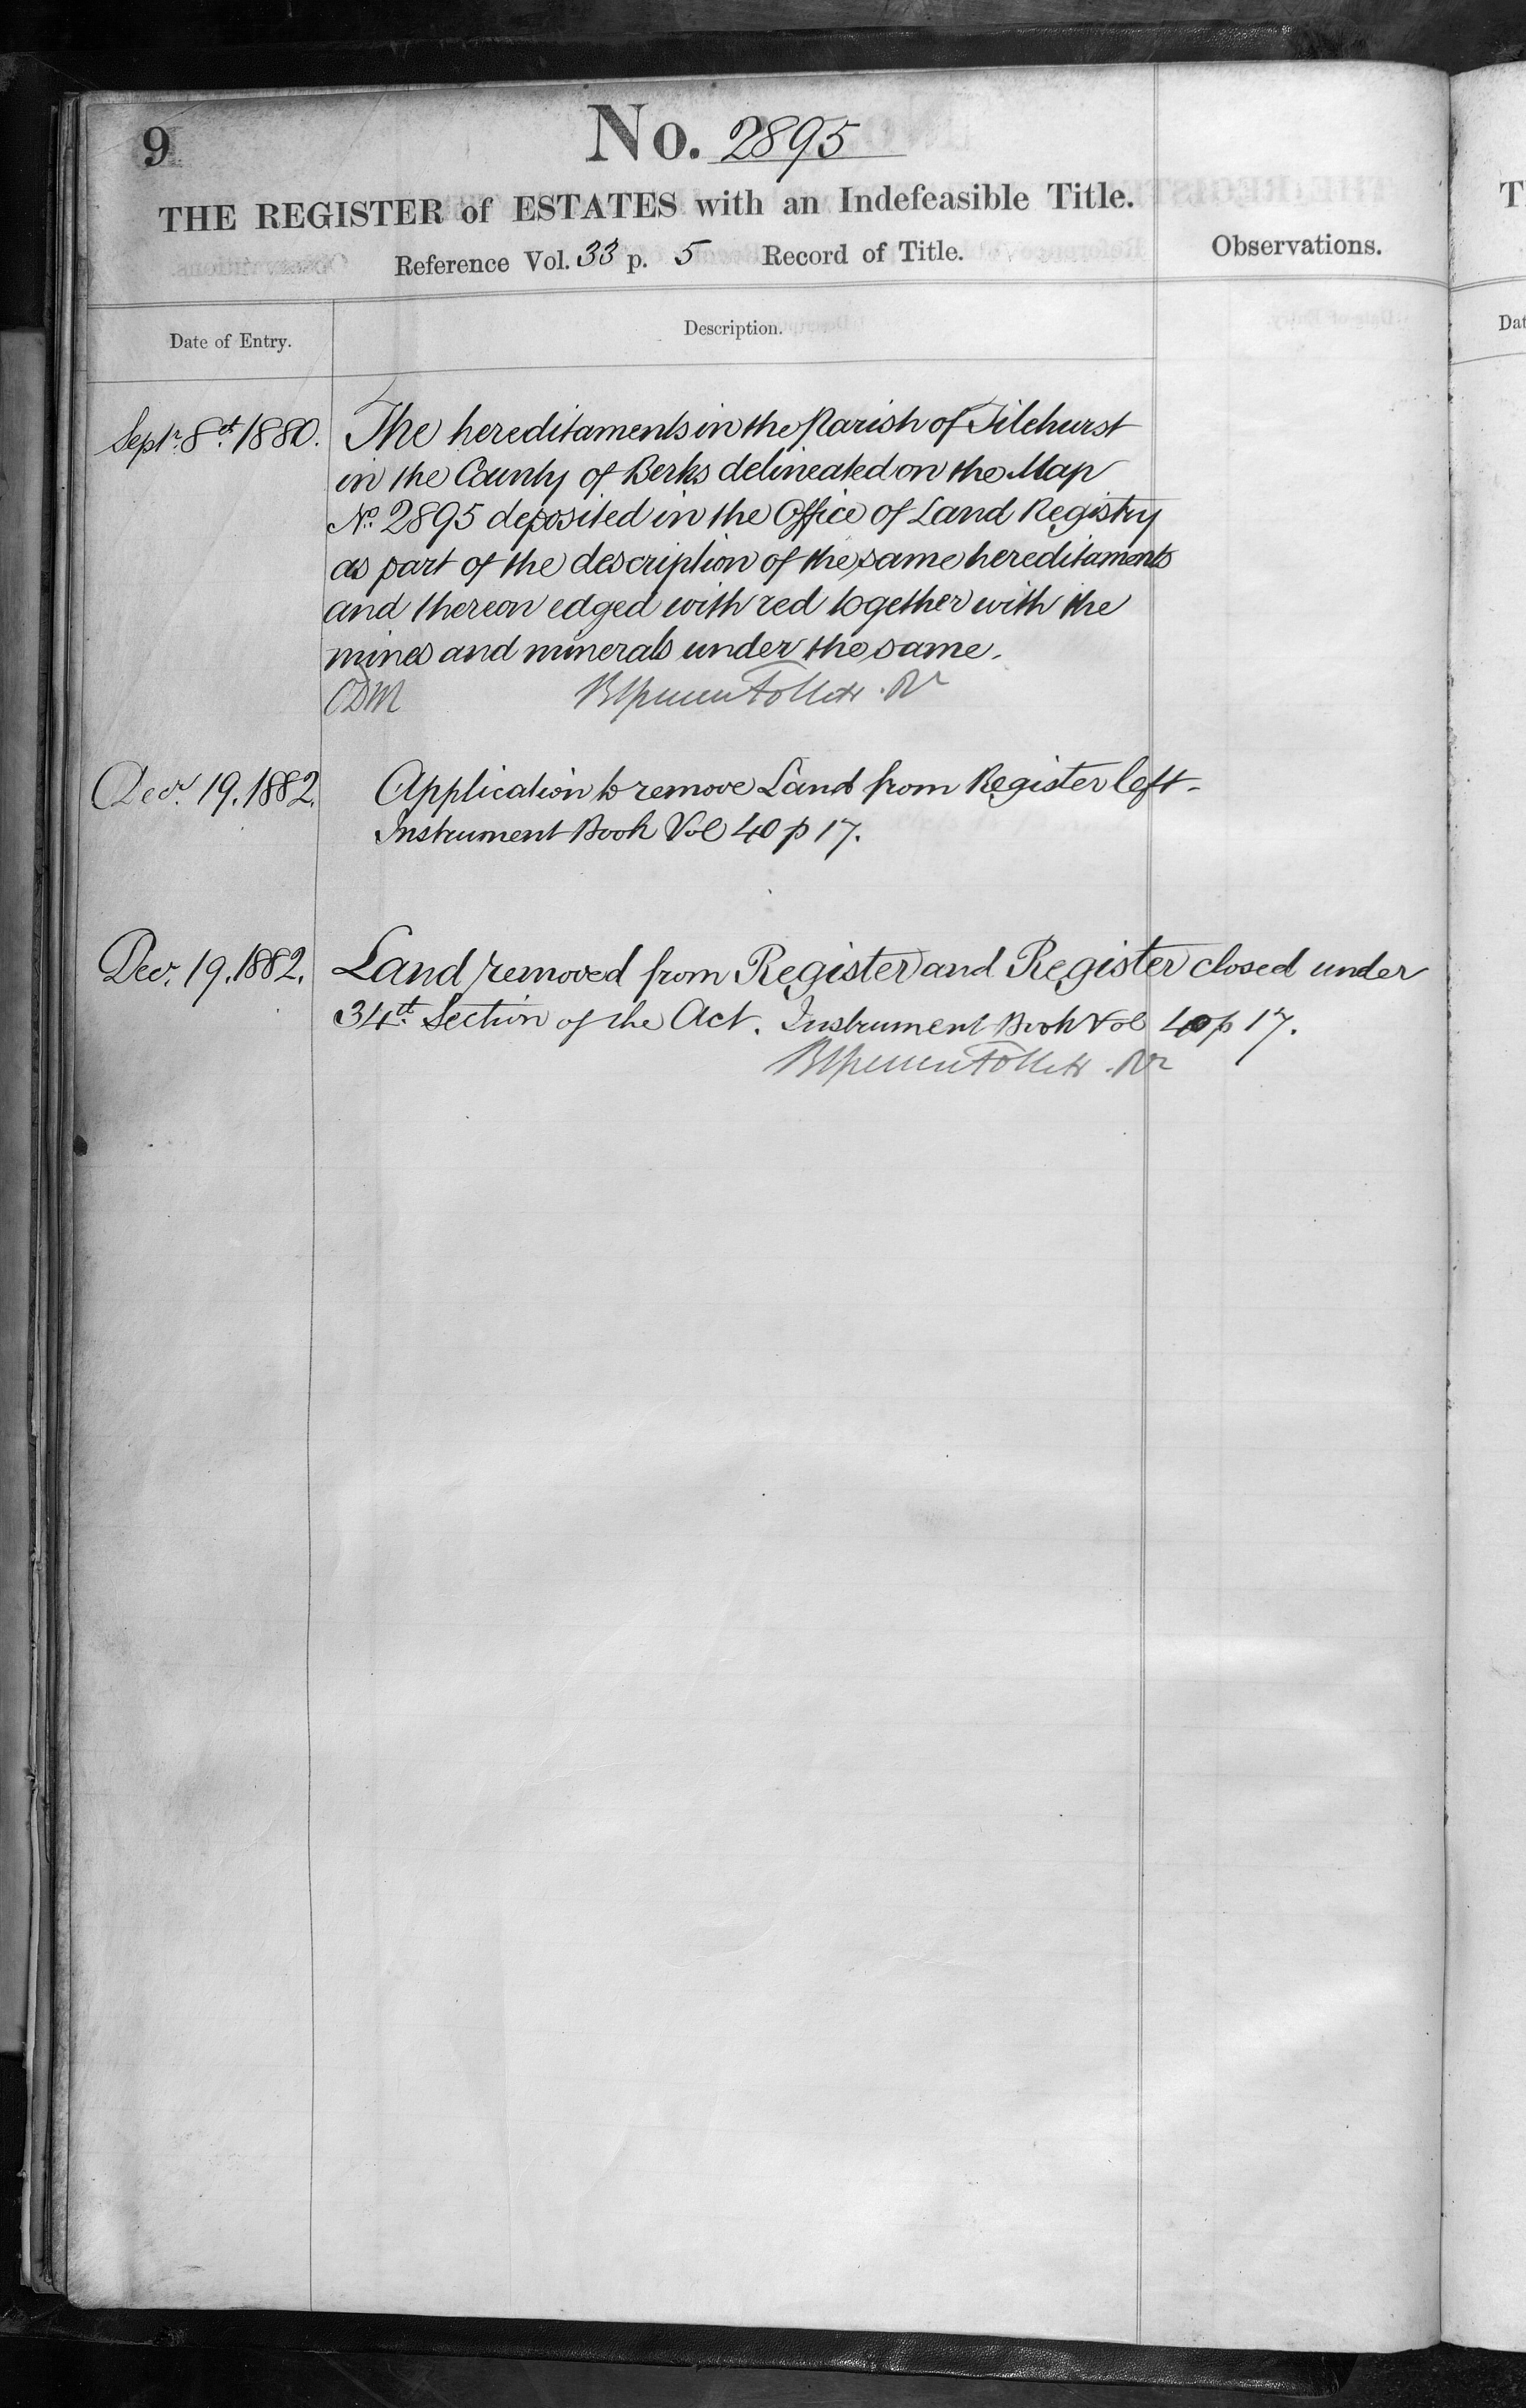 9
No. 2895
THE REGISTER of ESTATES with an Indefeasible Title.
Reference Vol. 33 p. 5 Record of Title.
Observations.
Date of Entry.
Description.
Septr. 8th. 1880.
The hereditaments in the Parish of Tilehurst
in the County of Berks delineated on the Map
No. 2895 deposited in the Office of Land Registry
as part of the description of the same hereditaments
and thereon edged with red together with the
mines and minerals under the same.
Decr. 19. 1882.
Application to remove Land from Register left -
Instrument Book Vol 40 p 17.
Decr. 19. 1882.
Land removed from Register and Register closed under
34th. Section of the Act. Instrument Book Vol 40 p 17.
T
Dat